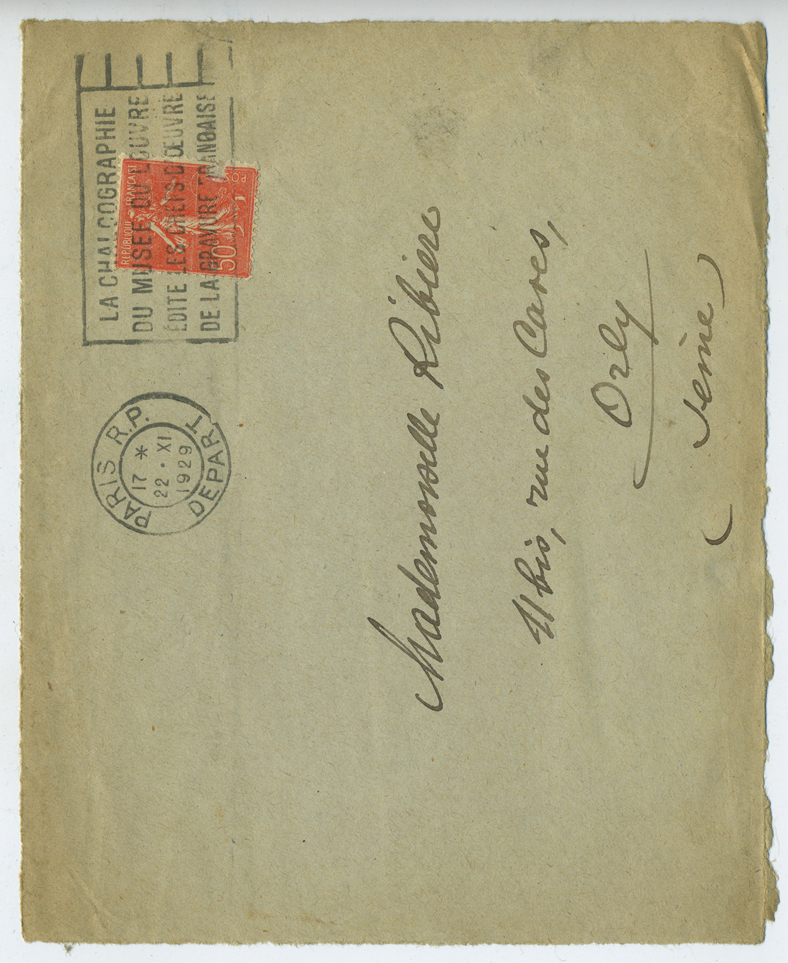 PARIS R.P.
17 *
22 · XI
1929
DEPART
LA CHALCOGRAPHIE
DU MUSÉE DU LOUVRE
ÉDITE LES CHEFS D'ŒUVRE
DE LA GRAVURE FRANÇAISE
REPUBLIQUE FRANÇAISE
POSTES
50c
Mademoiselle Ribière
11 bis, rue des Caves,
Orly
(Seine)